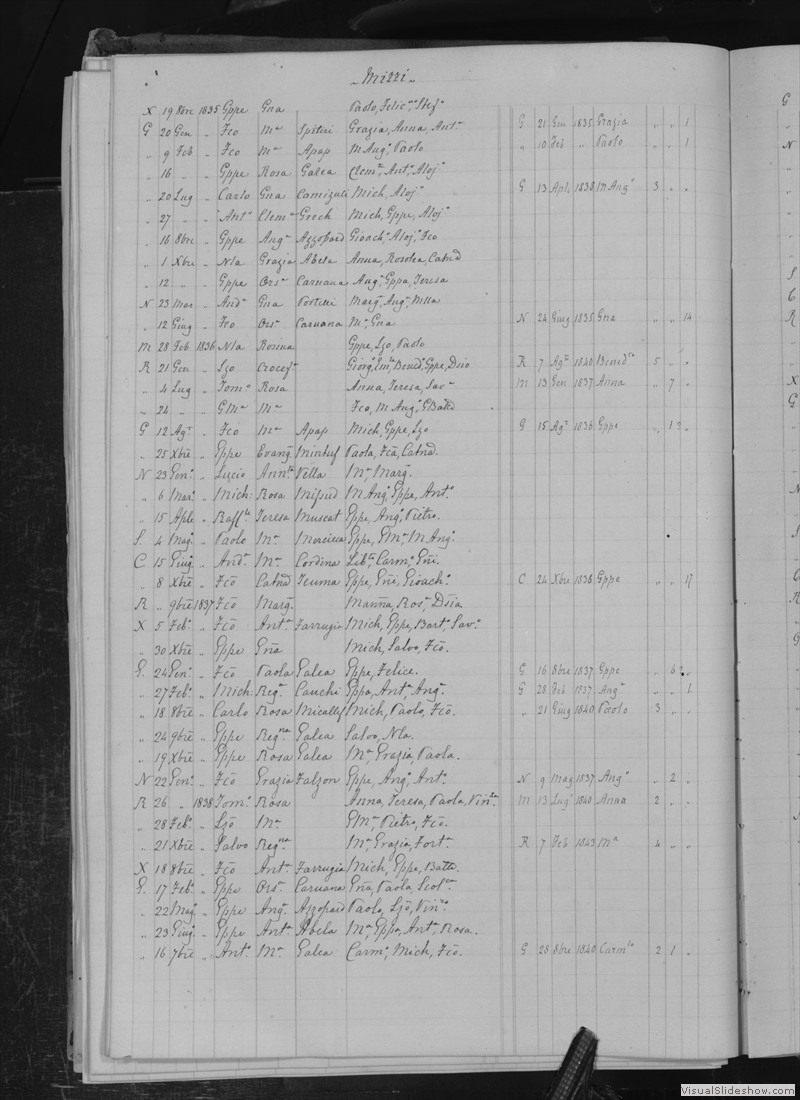 Mizzi
X 19 8bre 1835 Gppe Gna Paolo, Felic
G 20 Gen „ Fco Ma Spiteri Grazia, Anna, Anta G 21 Gen 1835 Grazia „ „ 1
„ 9 Feb „ Fco Ma Apap M Anga, Paolo „ 10 Feb „ Paolo „ „ 1
„ 16 „ „ Gppe Rosa Galea Clema, Anto, Aloja
„ 20 Lug „ Carlo Gna Camizuli Mich, Aloja G 13 Apl 1838 M Anga 3 „ „
„ 27 „ „ Anto Clema Grech Mich, Gppe, Aloja
„ 16 8bre „ Gppe Anga Azzopard Gioacha, Aloja, Fco
„ 1 Xbre „ Nla Grazia Abela Anna, Rosolea, Catnd
„ 12 „ „ Gppe Orsa Caruana Anga, Gppa, Teresa
N 23 Mar „ Anda Gna Portelli Marga, Anga, Nlla
„ 12 Giug „ Fco Orsa Caruana Ma, Gna N 24 Giug 1835 Gna „ „ 14
M 28 Feb 1836 Nla Rosina Gppe, Lzo, Paolo
R 21 Gen „ Lzo Crocefa Giorgo, Benedo, Gppe, Dsio R 7 Ago 1840 Bened 5 „ „
„ 4 Lug „ Tomo Rosa Anna, Teresa, Sava M 13 Gen 1837 Anna „ 7 „
„ 24 „ „ GMa Ma Fco, M Anga, GBatta
G 12 Ago „ Fco Ma Apap Mich, Gppe, Lzo G 15 Ago 1836 Gppe
„ 25 Xbre „ Gppe Evanga Mintuf Paola, Fca, Catnd.
N 23 Geno „ Lucio Annta Vella Ma, Marga.
„ 6 Mar. „ Mich. Rosa Mifsud M Anga, Gppe, Anto.
„ 15 Aple „ Raffle Teresa Muscat Gppe, Anga, Pietro.
S. 4 Mago „ Paolo Ma Mercieca Gppe, GMa, M Anga.
C 15 Giugo „ Anda Ma Cordina Liba, Carma, Gni.
„ 8 Xbre „ Fco Catnd Teuma Gppe, Gni, Gioacho. C 24 Xbre 1836 Gppe „ „ 17
R „ 9bre 1837 Fco Marga Mannna, Rosa, Dsia.
X 5 Febo „ Fco Anta Farrugia Mich, Gppe, Barto, Savo.
„ 30 Xbre „ Gppe Gna Mich, Salvo, Fco.
G. 24 Geno „ Fco Paola Galea Gppe, Felice. G 16 8bre 1837 Gppe
„ 27 Febo „ Mich. Rega Cauchi Gppa, Anta, Anga. G 28 Feb 1837 Anga „ „ 1
„ 18 8bre „ Carlo Rosa Micallef Mich, Paolo, Fco. „ 21 Giug 1840 Paolo 3 „ „
„ 24 9bre „ Gppe Regna Galea Salvo, Nla.
„ 19 Xbre „ Gppe Rosa Galea Ma, Grazia, Paola.
N 22 Geno „ Fco Grazia Falzon Gppe, Anga, Anto. N 9 Mag 1837 Anga „ 2 „
R 26 „ 1838 Tomo Rosa Anna, Teresa, Paola, Vinza. M 13 Lugo 1840 Anna 2 „ „
„ 28 Febo „ Lzo Ma GMa, Pietro, Fco.
„ 21 Xbre „ Salvo Regna Ma, Grazia, Forta. R 7 Feb 1843 Ma 4 „ „
X 18 8bre „ Fco Anta Farrugia Mich, Gppe, Batta.
G. 17 Febo „ Gppe Orsa Caruana Gna, Paola, Scola.
„ 22 Mago „ Gppe Anga Azzopard Paolo, Lzo, Vinzo.
„ 23 Giugo „ Gppe Anta Abela Ma Gppa, Anta, Rosa.
„ 16 7bre „ Anto Ma Galea Carmo, Mich, Fco. G 28 8bre 1840 Carmo 2 1 „
VisualSlideshow.com